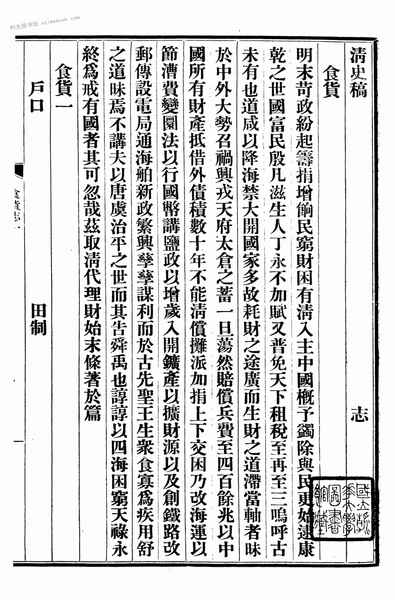 清史稿　志
食貨
明末苛政紛起籌捐增餉民窮財困有清入主中國概予蠲除與民更始逮康
乾之世國富民殷凡滋生人丁永不加賦又普免天下租稅至再至三嗚呼古
未有也道咸以降海禁大開國家多故耗財之途廣而生財之道滯當軸者昧
於中外大勢召禍興戎天府太倉之蓄一旦蕩然賠償兵費至四百餘兆以中
國所有財產抵借外債積數十年不能清償攤派加捐上下交困乃改海運以
節漕費變圜法以行國幣講鹽政以增歲入開鑛產以擴財源以及創鐵路改
郵傳設電局通海舶新政繁興孳孳謀利而於古先聖王生衆食寡爲疾用舒
之道昧焉不講夫以唐虞治平之世而其告舜禹也諄諄以四海困窮天祿永
終爲戒有國者其可忽哉茲取清代理財始末條著於篇
食貨一
戶口　田制
食貨志一
一